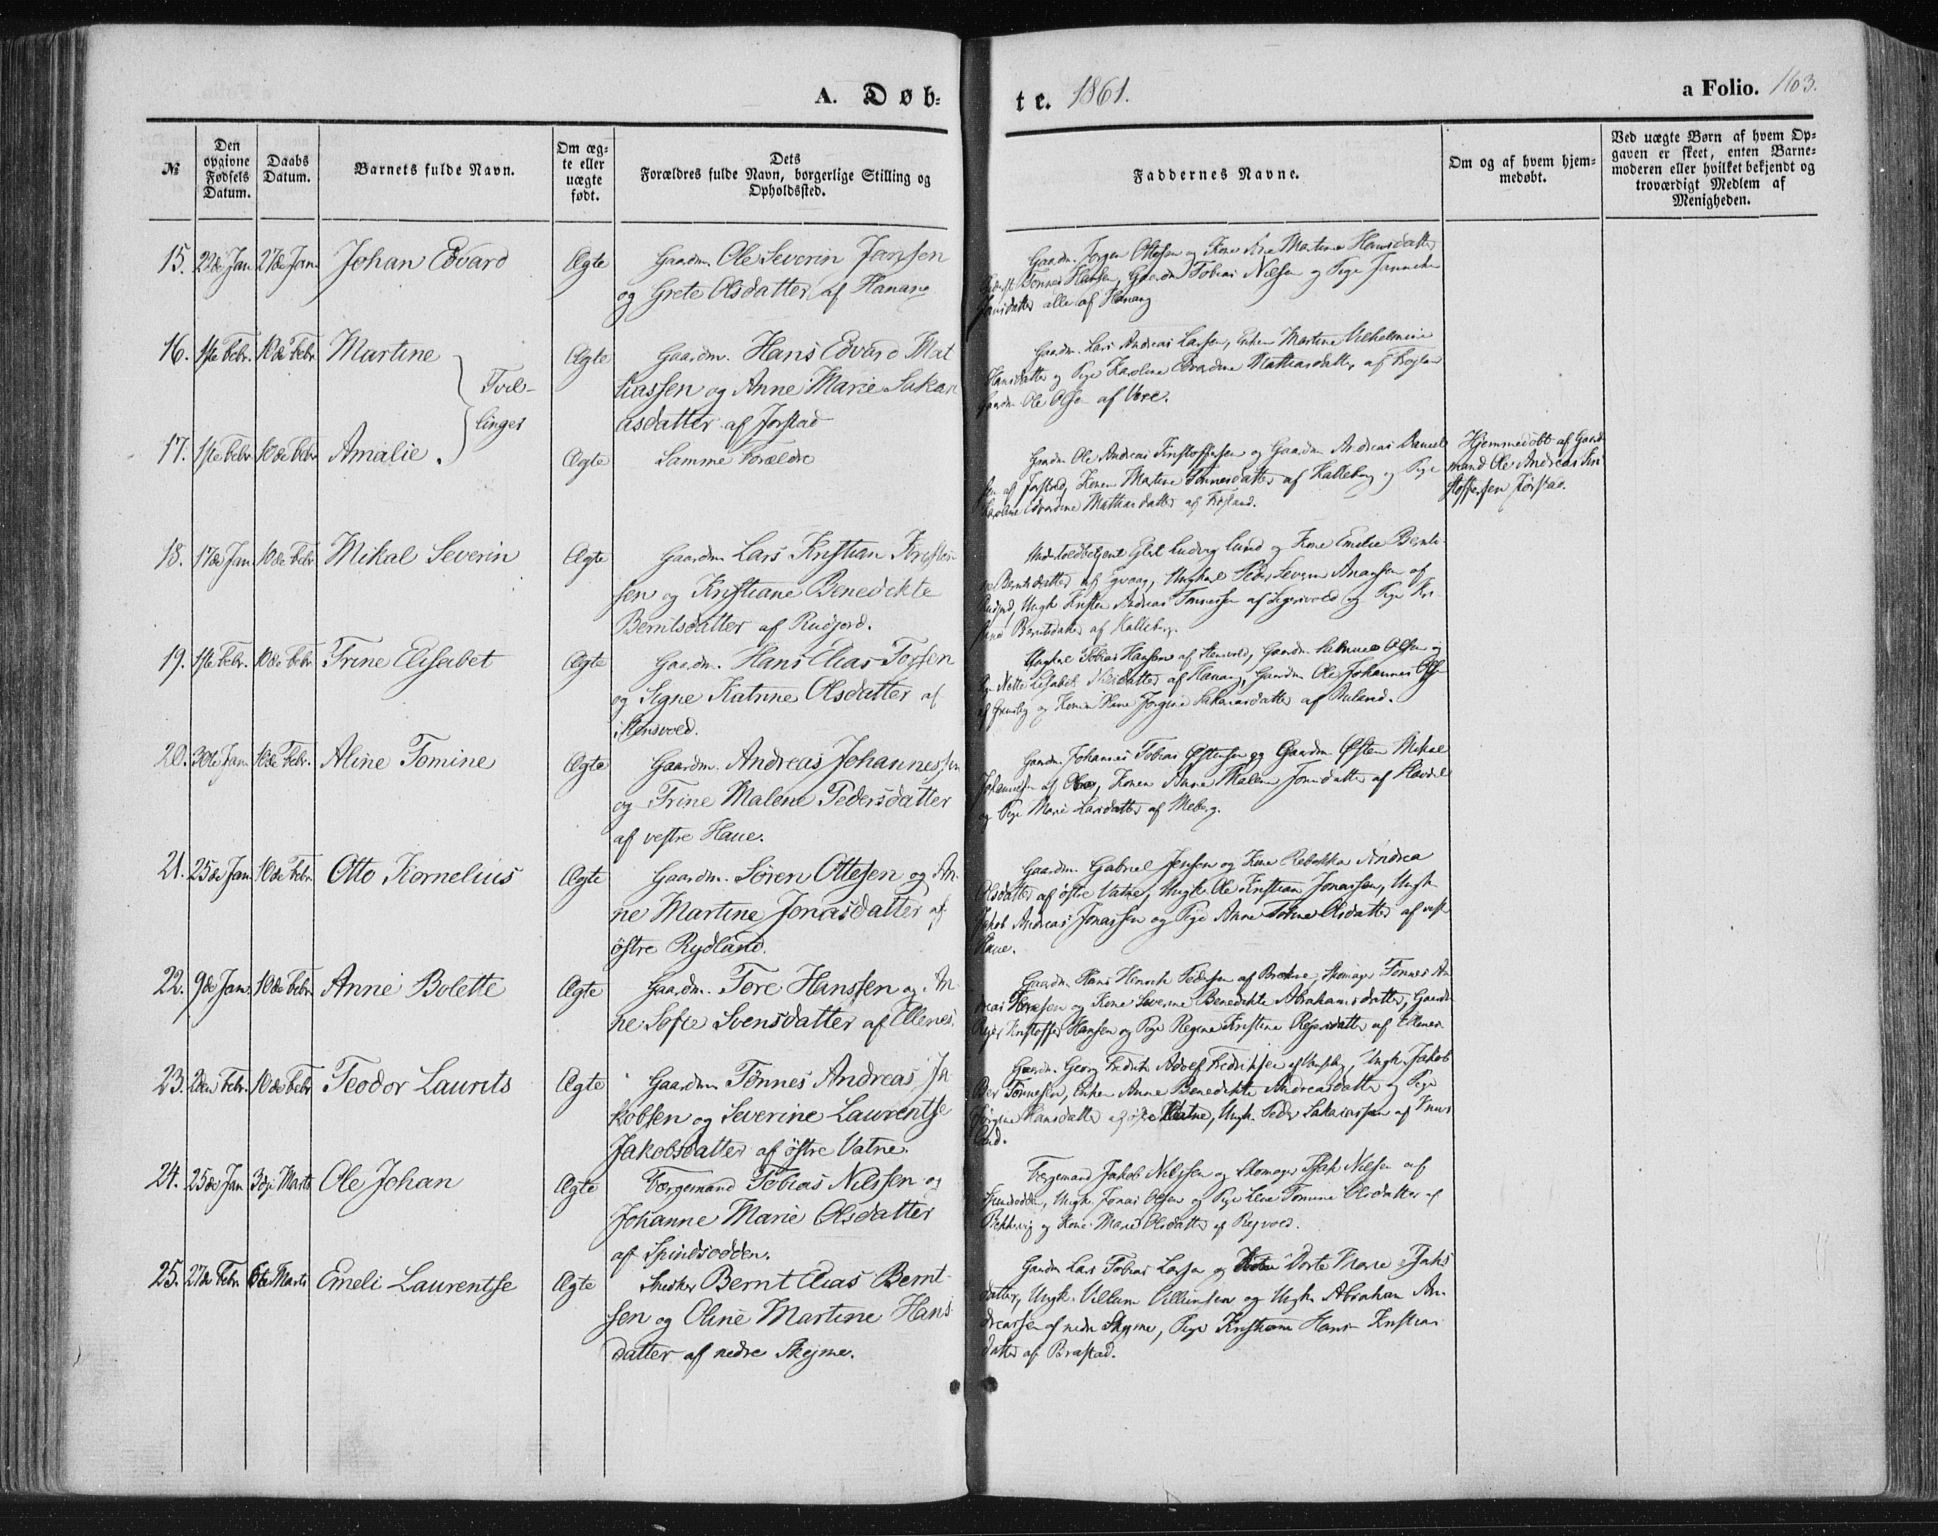 A. Døb-
te. 1861.
a Folio. 163.
№
Den opgivne Fødsels Datum.
Daabs Datum.
Barnets fulde Navn.
Om ægte eller uægte født.
Dets Forældres fulde Navn, borgerlige Stilling og Opholdssted.
Faddernes Navne.
Om og af hvem hjemmedøbt.
Ved uægte Børn af hvem Opgaven er skeet, enten Barnemoderen eller hvilket bekjendt og troværdigt Medlem af Menigheden.
15. 22de Jan 27de Jan Johan Edvard Ægte Gaardm. Ole Severin Jonssen
og Grete Olsdatter af Hanang
Gaardm. Jørgen Ottesen og Kone Martine Hansdatter
Tønnes Hansen, Gaardm Tobias Nilsen og Pige Janneke
Hansdatter alle af Hanang
16. 1ste Febr. 10de Febr. Martine Ægte Gaardm. Hans Edvard Mat
Tvil-
linger
tiassen og Anne Marie Sakari
asdatter af Jørstad
Gaardm. Lars Andreas Larssen, Enken Martine Vilhelmine
Hansdatter og Pige Karoline Edvardine Mathiasdatter af Frøjland
Gaardm Ole Olsen af Vore.
17. 1ste Febr. 10de Febr. Amalie. Ægte Samme Forældre
Gaardm Ole Andreas Kristoffersen og Gaardm Andreas Daniel
sen af Jørstad, Konen Martine Tønnesdatter af Kalleberg og Pige
Karoline Edvardine Mathiasdatter af Frøjland.
Hjemmedøbt af Gaard
mand Ole Andreas Kri
stoffersen Jørstad.
18. 17de Jan 10de Febr Mikal Severin Ægte Gaardm Lars Kristian Kristen
sen og Kristiane Benedikte
Berntsdatter af Rudjord.
Ludvig Lund og Kone Emelie Bernti
ne Berntsdatter af Egvaag, Ungkarl Peder Severin Anansen af
Rudjord, Ungk Kristen Andreas Tønnesen af Sigersvold og Pige Kri
stine Berntsdatter af Kalleberg.
19. 1ste Febr. 10de Febr Trine Elisabet Ægte Gaardm. Hans Elias Torsen
og Signe Katrine Olsdatter af
Stensvold.
Ungkarl Tobias Hansen af Stensvold, Gaardm Olsen og
Pige Nette Elisabet Nilsdatter af Hanang, Gaardm Ole Johannes Olsen
og Konen Jørgine Sakariasdatter af Buland.
20. 30te Jan 10de Febr. Aline Tomine Ægte Gaardm. Andreas Johannessen
og Trine Malene Pedersdatter
af vestre Haue.
Gaardm. Johannes Tobias Østensen og Gaardm Østen Mikal
Johannesen af Ore, Konen Anne Malene Jonsdatter af Slevdal
og Pige Marie Larsdatter af Meberg.
21. 25de Jan 10de Febr. Otto Kornelius Ægte Gaardm. Søren Ottesen og An-
ne Martine Jonasdatter af
østre Rydland.
Gaardm. Gabriel Jensen og Kone Rebekka Andrea
Olsdatter af østre Vatne, Ungk. Ole Kristian Jonassen, Ungk.
Jakob Andreas Jonassen og Pige Anne Tomine Olsdatter af vest
Haue.
22. 9de Jan 10de Febr. Anne Bolette Ægte Gaardm. Tore Hanssen og An-
ne Sofie Svensdatter af Ellenes.
Gaardm Hans Henrik Pedersen af Brekne, Skomager Tønnes An
dreas Toresen og Kone Severine Benedikte Abrahamsdatter, Gaardm
Reier Kristoffer Hansen og Pige Regine Kristine Reiersdatter af Ellenes
23. 2den Febr. 10de Febr Teodor Laurits Ægte Gaardm Tønnes Andreas Ja
kobsen og Severine Laurentse
Jakobsdatter af østre Vatne.
Gaardm. Georg Fredrik Adolf Fredriksen af Vansby, Ungk. Jakob
Tønnesen, Enken Anne Benedikte Andreasdatter og Pige
Jørgine Hansdatter af østre Vatne, Ungk. Peder Sakariassen af
land.
24. 25de Jan 3die Marts Ole Johan Ægte Færgemand Tobias Nilssen og
Johanne Marie Olsdatter
af Spindsodden.
Færgemand Jakob Nilssen og Skomager Isak Nilsen af
Spindsodden, Ungk. Jonas Olsen og Pige Lene Tomine Olsdatter af
og Kone Marie Olsdatter af Regvold.
25. 27de Febr. 6te Marts Emeli Laurentse Ægte Snedker Bernt Elias Bernt-
sen og Oline Martine Hans-
datter af nedre Skejme.
Gaardm Lars Tobias Larsen og Kone Dorte Marie Isaks
datter, Ungk. Villum Villumsen og Ungk. Abraham An-
dreassen af nedre Skejme, Pige Kristiane Kristian
datter af Brastad.